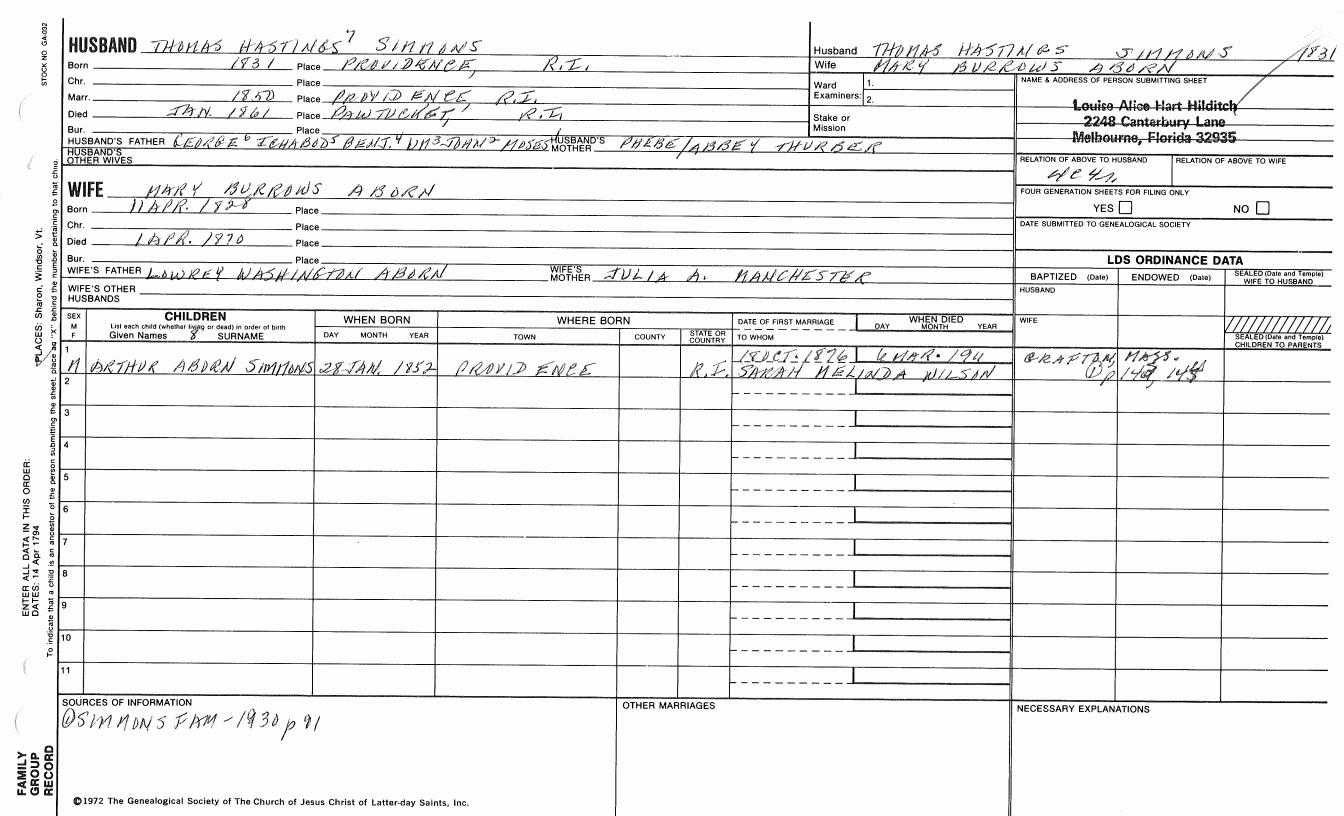 STOCK NO. GA-032
HUSBAND THOMAS HASTINGS 7 SIMMONS
Born 1831 Place PROVIDENCE, R.I.
Chr. Place
Marr. 1850 Place PROVIDENCE, R.I.
Died JAN. 1861 Place PAWTUCKET, R.I.
Bur. Place
HUSBAND'S FATHER GEORGE 6 ICHABOD 5 BENJ. 4 WM 3 JOHN 2 MOSES 1 HUSBAND'S MOTHER PHEBE/ABBEY THURBER
HUSBAND'S OTHER WIVES
Husband THOMAS HASTINGS SIMMONS 1831
Wife MARY BURROWS ABORN
Ward Examiners: 1.
2.
Stake or Mission
NAME & ADDRESS OF PERSON SUBMITTING SHEET
Louise Alice Hart Hilditch
2248 Canterbury Lane
Melbourne, Florida 32935
RELATION OF ABOVE TO HUSBAND RELATION OF ABOVE TO WIFE
FOUR GENERATION SHEETS FOR FILING ONLY
YES NO
DATE SUBMITTED TO GENEALOGICAL SOCIETY
WIFE MARY BURROWS ABORN
Born 11 APR. 1828 Place
Chr. Place
Died 1 APR. 1890 Place
Bur. Place
WIFE'S FATHER LOWREY WASHINGTON ABORN WIFE'S MOTHER JULIA A. MANCHESTER
WIFE'S OTHER HUSBANDS
LDS ORDINANCE DATA
BAPTIZED (Date) ENDOWED (Date) SEALED (Date and Temple) WIFE TO HUSBAND
HUSBAND
WIFE
SEALED (Date and Temple) CHILDREN TO PARENTS
SEX M F
CHILDREN
List each child (whether living or dead) in order of birth
Given Names 8 SURNAME
WHEN BORN
DAY MONTH YEAR
WHERE BORN
TOWN COUNTY STATE OR COUNTRY
DATE OF FIRST MARRIAGE
TO WHOM
WHEN DIED
DAY MONTH YEAR
1 18 OCT. 1876 6 MAR. 1911 GRAFTON, MASS.
M ARTHUR ABORN SIMMONS 28 JAN. 1852 PROVIDENCE R.I. SARAH MELINDA WILSON
2
3
4
5
6
7
8
9
10
11
SOURCES OF INFORMATION
① SIMMONS FAM - 1930 p 91
OTHER MARRIAGES
NECESSARY EXPLANATIONS
©1972 The Genealogical Society of The Church of Jesus Christ of Latter-day Saints, Inc.
FAMILY
GROUP
RECORD
ENTER ALL DATA IN THIS ORDER:
DATES: 14 Apr 1794
PLACES: Sharon, Windsor, Vt.
To indicate that a child is an ancestor of the person submitting the sheet, place an "X" behind the number pertaining to that child.